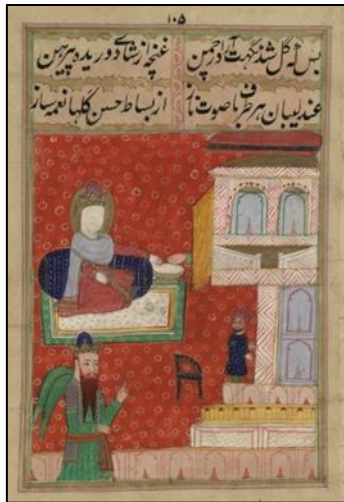 ۱۰۵
بس که گل شد نکهت آرا در چمن غنچه از شادی دریده پیرهن
عندلیبان هر طرف با صوت ناز از بساط حسن گلها نغمه ساز